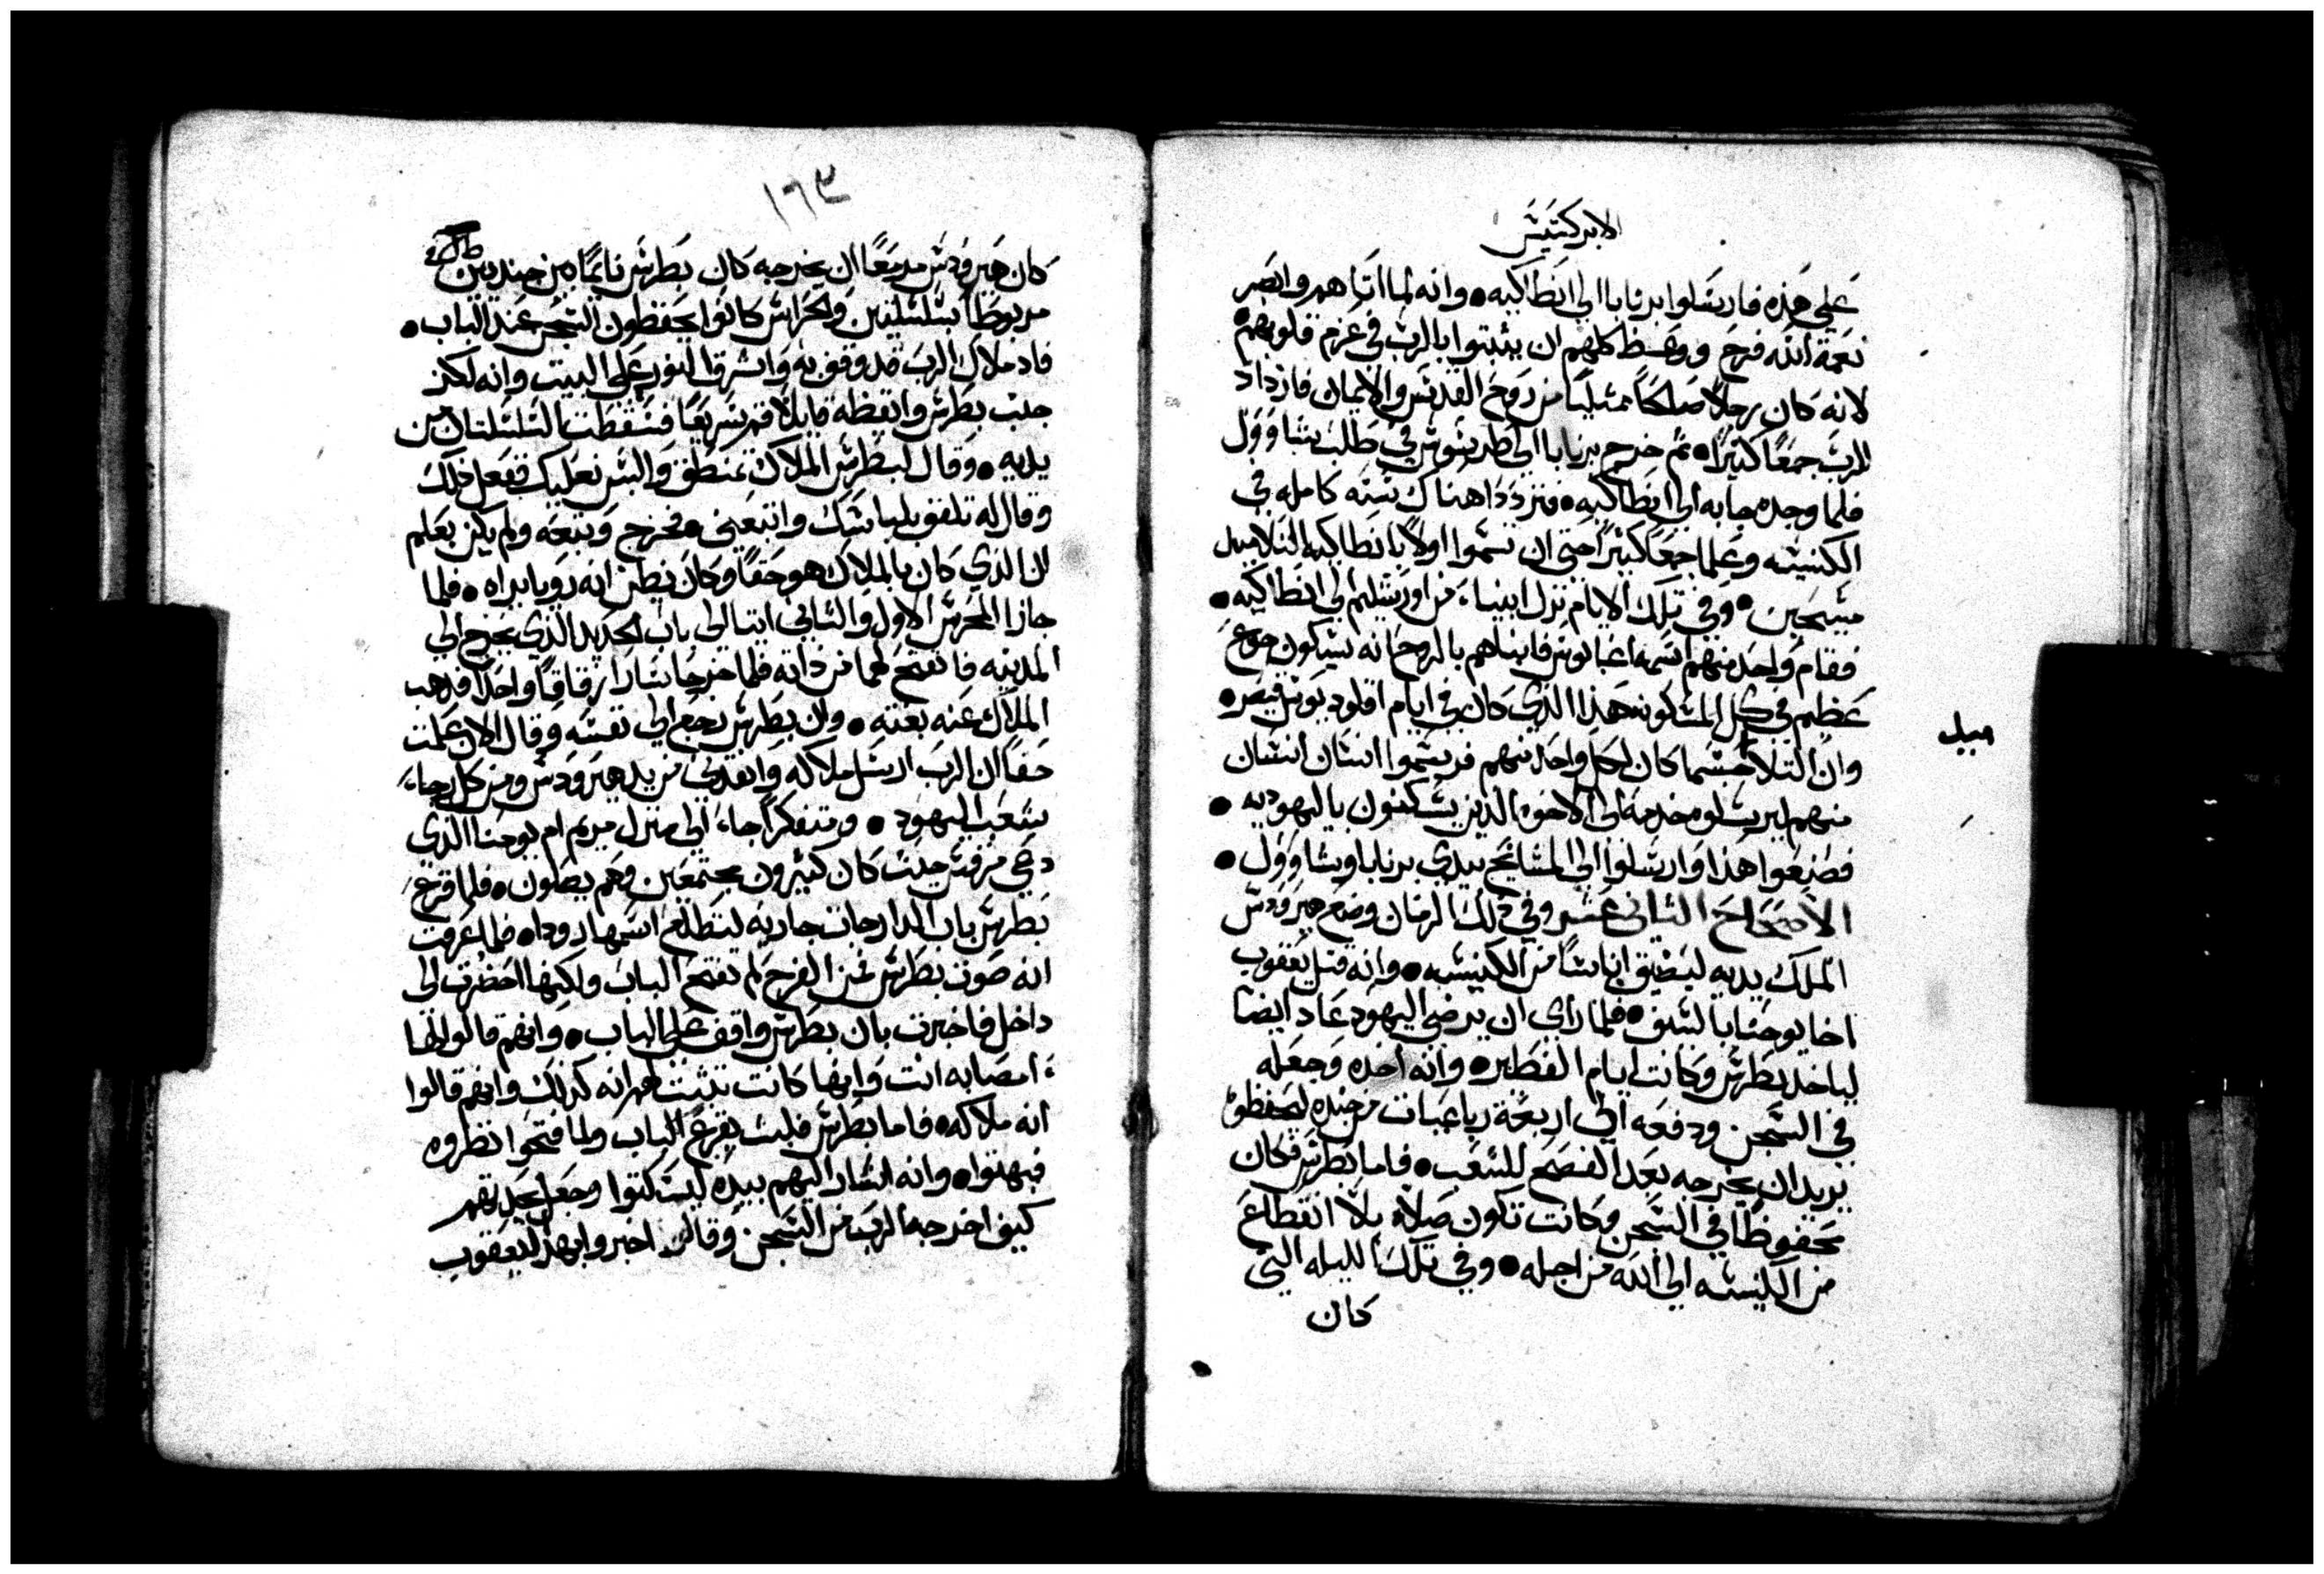 الابركسيس
على هذه فارسلوا برنابا الى انطاكيه • وانه لما اتاهم وابصر
نعمة الله فرح ووعظ كلهم ان يثبتوا بالرب في عزم قلوبهم
لانه كان رجلاً صالحاً ممتلياً من روح القدس والايمان فازداد
للرب جمعاً كثيراً • ثم خرج برنابا الى طرسوس في طلب شاوول
فلما وجده جابه الى انطاكيه • فترددا هناك سنه كامله في
الكنيسه وعلما جمعاً كثيراً حتى ان تسموا اولاً بانطاكيه التلاميد
مسيحيين • وفي تلك الايام نزل انبياء من اورشليم الى انطاكيه •
فقام واحد منهم اسمه اغابوس فانباهم بالروح انه سيكون جوع
عظيم في كل المسكونه هذا الذي كان في ايام اقلوديوس قيصر •
وان التلا حسبما كان لكل واحد منهم فرسموا انسان انسان
ميد
منهم ليرسلو خدمه الى الاخوه الذين يسكنون باليهوديه •
فصنعوا هذا وارسلوا الى المشايخ بيدي برنابا وشاوول •
الاصحاح الثاني عشر وفي ذلك الزمان وضع هيرودس
الملك يديه ليضيق اناساً من الكنيسه • وانه قتل يعقوب
اخا يوحنا بالسيف • فلما راي ان يرضي اليهود عاد ايضا
لياخد بطرس وكانت ايام الفطير • وانه اخده وجعله
في السجن ودفعه الى اربعة رباعيات من جنده ليحفظوه
يريد ان يخرجه بعد الفصح للشعب • فاما بطرس فكان
محفوظاً في السجن وكانت تكون صلاه بلا انقطاع
من الكنيسه الى الله من اجله • وفي تلك الليله التي
كان
١٦٣
كان هيرودس مزمعاً ان يخرجه كان بطرس نايماً من جنديين
مربوطاً بسلسلتين والحراس كانوا يحفظون السجن عند الباب •
فاد ملاك الرب قد وقف به واشرق النور على البيت وانه لكز
جنب بطرس وايقظه قايلاً قم سريعاً فسقطت السلسلتان من
يديه • وقال لبطرس الملاك تمنطق والبس نعليك ففعل ذلك
وقال له تلفف بلباسك واتبعني • فخرج وتبعه ولم يكن يعلم
ان الذي كان بالملاك هو حقاً وكان يظن انه رويا يراه • فلما
جازا المحرس الاول والثاني اتيا الى باب الحديد الذي يخرج الى
المدينه فانفتح لهما من ذاته فلما خرجا سارا زقاقاً واحداً فدهب
الملاك عنه بغته • وان بطرس رجع الى نفسه وقال الان علمت
حقاً ان الرب ارسل ملاكه وانقدني من يد هيرودس ومن كل رجاء
شعب اليهود • ومتفكراً جاء الى منزل مريم ام يوحنا الذي
دعي مرقس حيث كان كثيرون مجتمعين وهم يصلون • فلما قرع
بطرس باب الدار جات جاريه لتطلع اسمها رودا • فلما عرفت
انه صوت بطرس فمن الفرح لم تفتح الباب ولكنها احضرت الى
داخل فاخبرت بان بطرس واقف على الباب • وانهم قالوا لها
امصابه انت وانها كانت تثبت لهم انه كذلك وانهم قالوا
انه ملاكه • فاما بطرس فلبث يقرع الباب ولما فتحوا نظروه
فبهتوا • وانه اشار اليهم بيده ليسكتوا وجعل يحدثهم
كيف اخرجه الرب من السجن وقال اخبروا بهذا ليعقوب